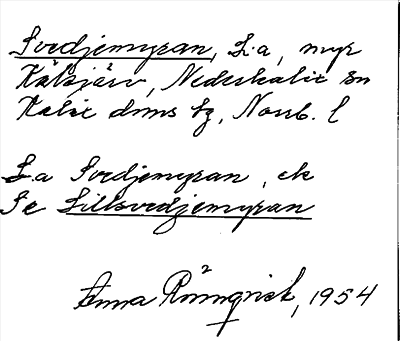 Svedjemyran, L:a, myr
Kälsjärv, Nederkalix sn
Kalix dms tg, Norrb. l
L:a Svedjemyran, ek
Se Lillsvedjemyran
Anna Rönnqvist, 1954